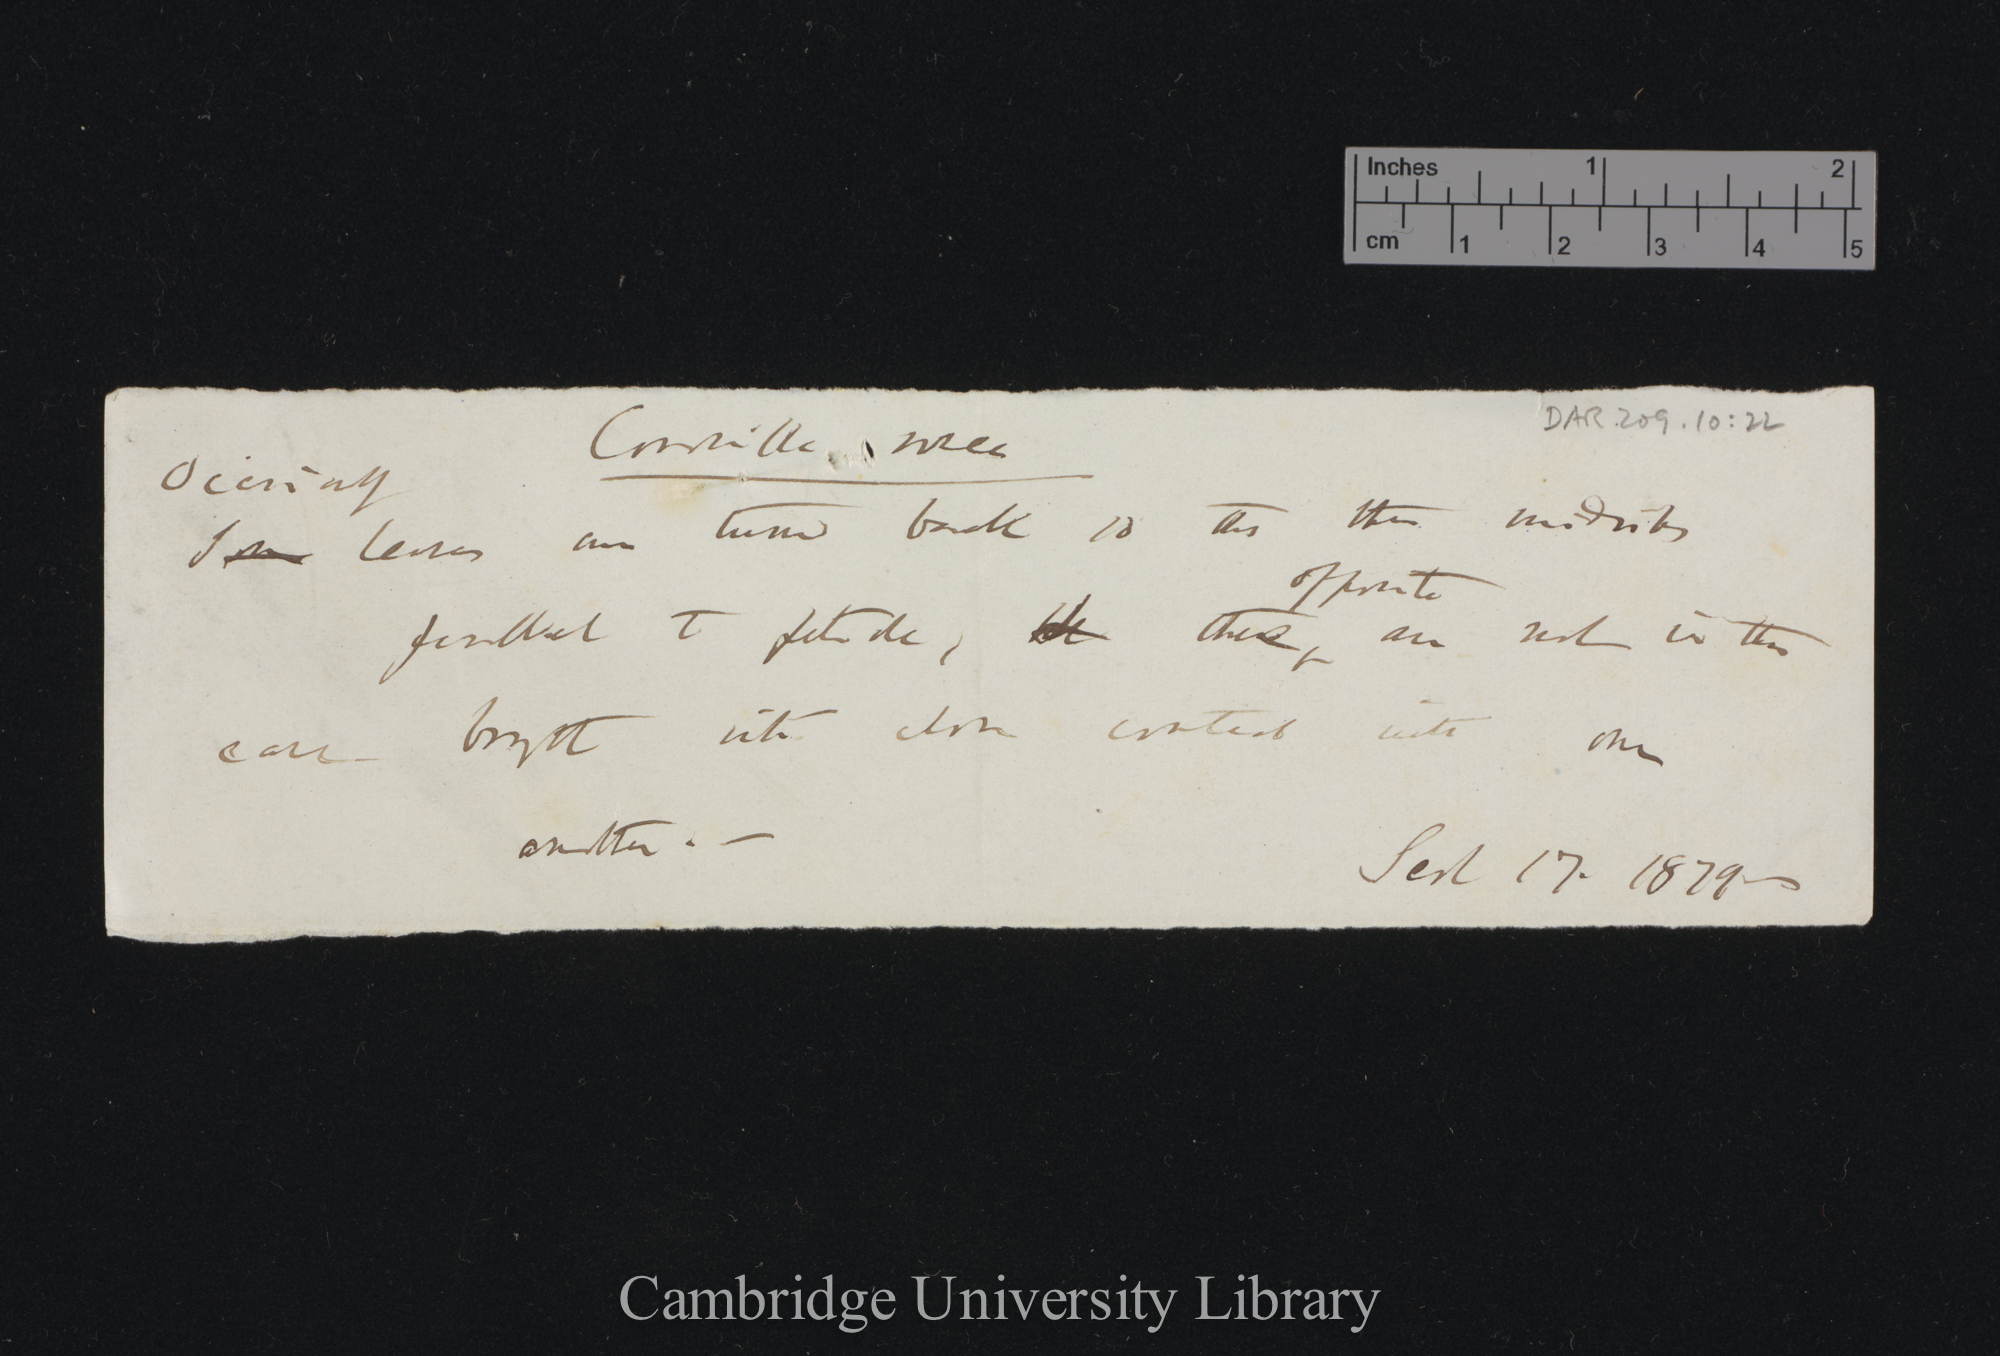 Inches 1 2
cm 1 2 3 4 5
DAR.209.10:22
Coronilla rosea
Occasionally
Some leaves are turned back so that their midribs
opposite
parallel to petiole, the these are not in this
case brought into close contact with one
another. —
Sept 17. 1879
Cambridge University Library